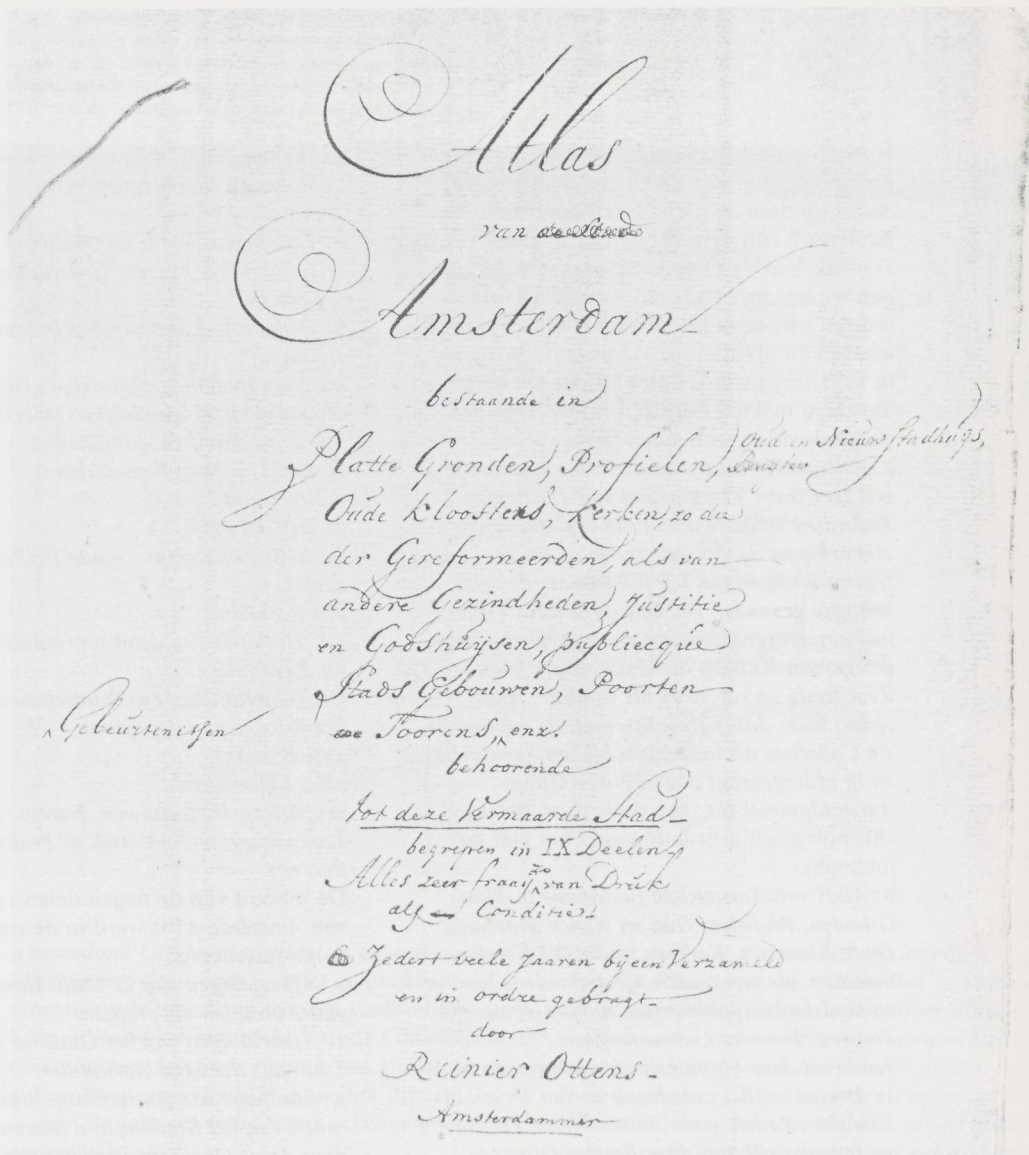 Atlas
van
Amsterdam
bestaande in
Platte Gronden, Profielen, Oud en Nieuw Stadhuijs,
Oude Kloosters, Kerken, zo der
der Gereformeerden, als van
andere Gezindheden, Justitie
en Godshuijsen, publiecque
Stads Gebouwen, Poorten
Toorens, Gebeurtenissen enz.
behoorende
tot deze Vermaarde Stad
begrepen in IX Deelen
Alles zeer fraaij zo van Druk
als Conditie
Zedert veele Jaaren bijeen Verzameld
en in ordre gebragt
door
Reinier Ottens
Amsterdammer